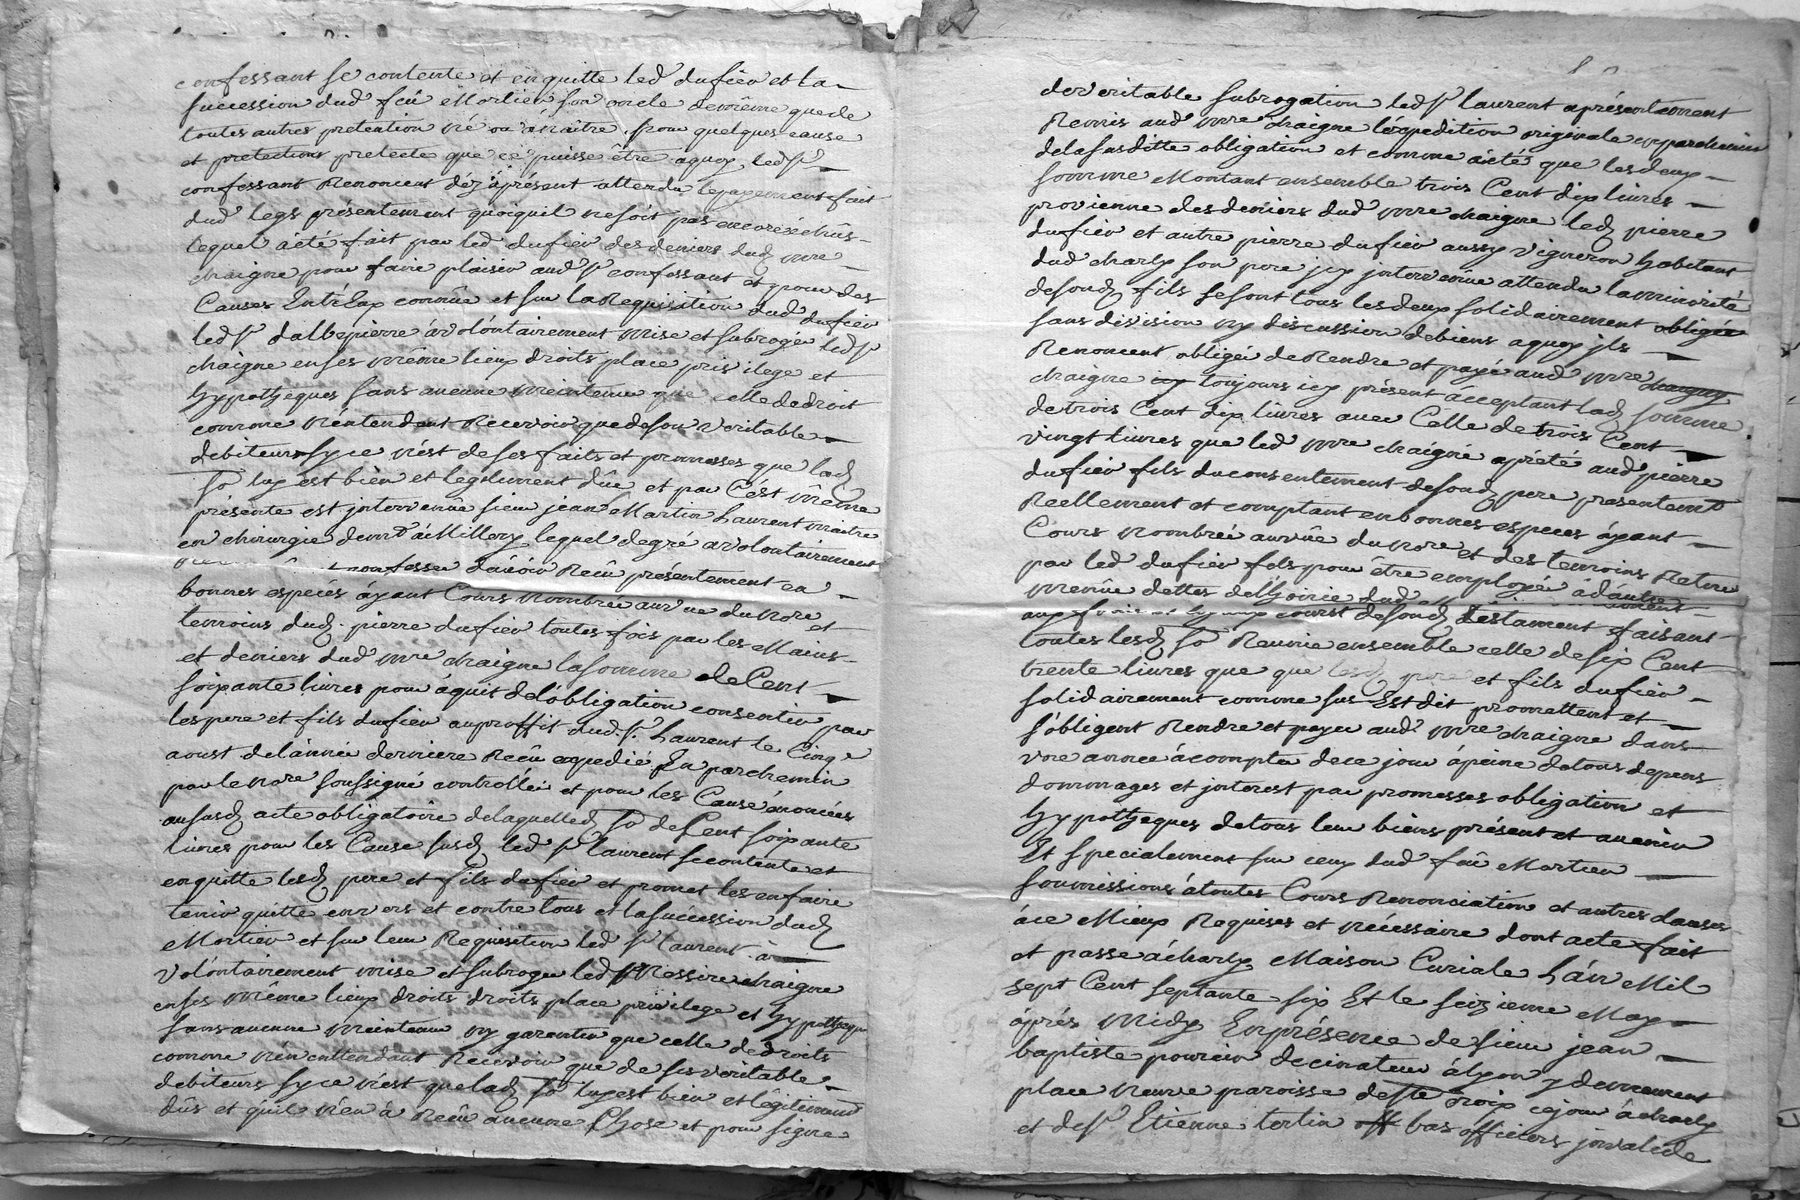 confessant se contente et en quitte led. dufieu et la
succession dud. feu Mortier son oncle de même que de
toutes autres pretention né ou à naître pour quelques cause
et pretections pretecte que ce puisse être aquoy led. Sr
confessant Renoncent déz àprésent attendu lepayement fait
dud. legs présentement quoiquil ne soit pas encore échûs
lequel àété fait par led. dufieu des deniers dud. mre
chaigne pour faire plaisir aud. Sr confessant et pour des
Causes Entr'Eux connüe et sur la Requisition dud. dufieu
led. Sr dalbepierre àvolóntairement mise et subroge led. Sr
chaigne en ses même lieux droits place privilege et
hypothéques sans aucune meintenue que celle de droit
comme n'éntendant Recevoir que de son véritable
débiteur sy ce n'ést de ses faits et promesses que lad.
So luy est bièn et legitement dûe et par Cést même
présente est jntervenüe sieur jean Martin Laurent maitre
en chirurgie demt à Millery lequel degré àvolontairement
confesse d'àvoir Reçu présentement en
bonnes espécés áyant Cours nombrée aux vue du nore et
temoins dud. pierre dufieu toutes fois par les Mains
et deniers dud. mre chaigne la somme de Cent
soixante livres pour áquit de l'óbligation consentie par
les pere et fils dufieu auproffit dud. Sr Laurent le Cinq
aoust de l'ànnée derniere Reçu expedié En parchemin
par le nore soussigné controllée et pour les Cause énoncées
aususd. acte obligâtoire de laquelled. So de Cent soixante
livres pour les Cause susd. led. Sr laurent se contente et
en quitte lesd. pere et fils dufieu et promet les en faire
tenir quitte envers et contre tous et la succession dud.
Mortier et sur leur Requisition led. Sr laurent à
volóntairement mise et subroge led. Sr Messire chaigne
en ses même lieux droits droits place privilege et hypothéque
sans aucune meintenue ny garentie que celle de droits
comme n'én entendant Recevoir que de ses veritable
débiteurs sy ce n'est que lad. So luy est bien et légitimemt
dûs et qu'il n'en à Reçu aucune Chose et pour signe
de veritable subrogation led. Sr laurent àprésentement
Remis aud. mre chaigne l'éxpedition originale en parchemin
de la susditte obligation et comme àété que les deux
somme Montant ensemble trois Cent dix livres
provienne des deniers dud. mre chaigne led. pierre
dufieu et autre pierre dufieu aussy vigneron habitant
dud. charly son pere jcy jntervenüe attendu la minorité
de sond. fils se sont tous les deux solidairement obligée
sans division ny discussion de biens a quoy jls
Renoncent obligée de Rendre et payé aud. mre chaigny
chaigne icy toujours icy présent ácceptant lad. somme
de trois Cent dix livres avec Celle de trois Cent
vingt livres que led. mre chaigne àprété aud. pierre
dufieu fils du consentement de sond. pere presentemt
Reellement et comptant en bonnes especes áyant
Cours nombrée aux vüe du nore et des temoins Retire
par led. dufieu fils pour être employée à d'àutre
menüe dettes de l'hoirie dud.
de sond. testament faisant
toutes lesd. So Reunie ensemble celle de six Cent
trente livres que que lesd. pere et fils dufieu
solidairement comme sus Est dit promettent et
s'óbligent Rendre et payer aud. mre chaigne dans
une année à compter de ce jour àpeine de tous depens
dommages et jnterest par promesses obligation et
hypothéques de tous leur biens présent et auenir
Et specialement sur ceux dud. feu Mortier
soumissions à toutes Cours Renonciation et autres clauses
à ce Mieux Requises et nécessaire dont acte fait
et passe à charly Maison Curiale L'àn Mil
sept Cent septante six Et le seizieme May
áprés Midy Enprésence de sieur jean
baptiste poursin decinateur à lyon y demeurant
place neuve paroisse de Ste Croix ce jour à charly
et de Sr Etienne tertin off bas officiers jnvalide